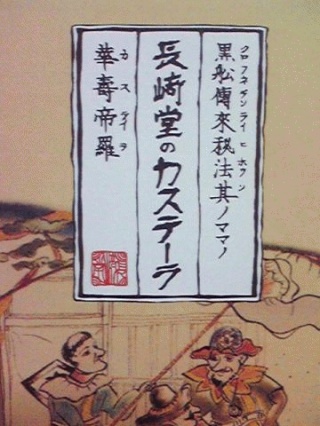 クロフネデンライヒホフソ
黒舩傳來秘法其ノママノ
長崎堂のカステーラ
カステイラ
華壽帝羅